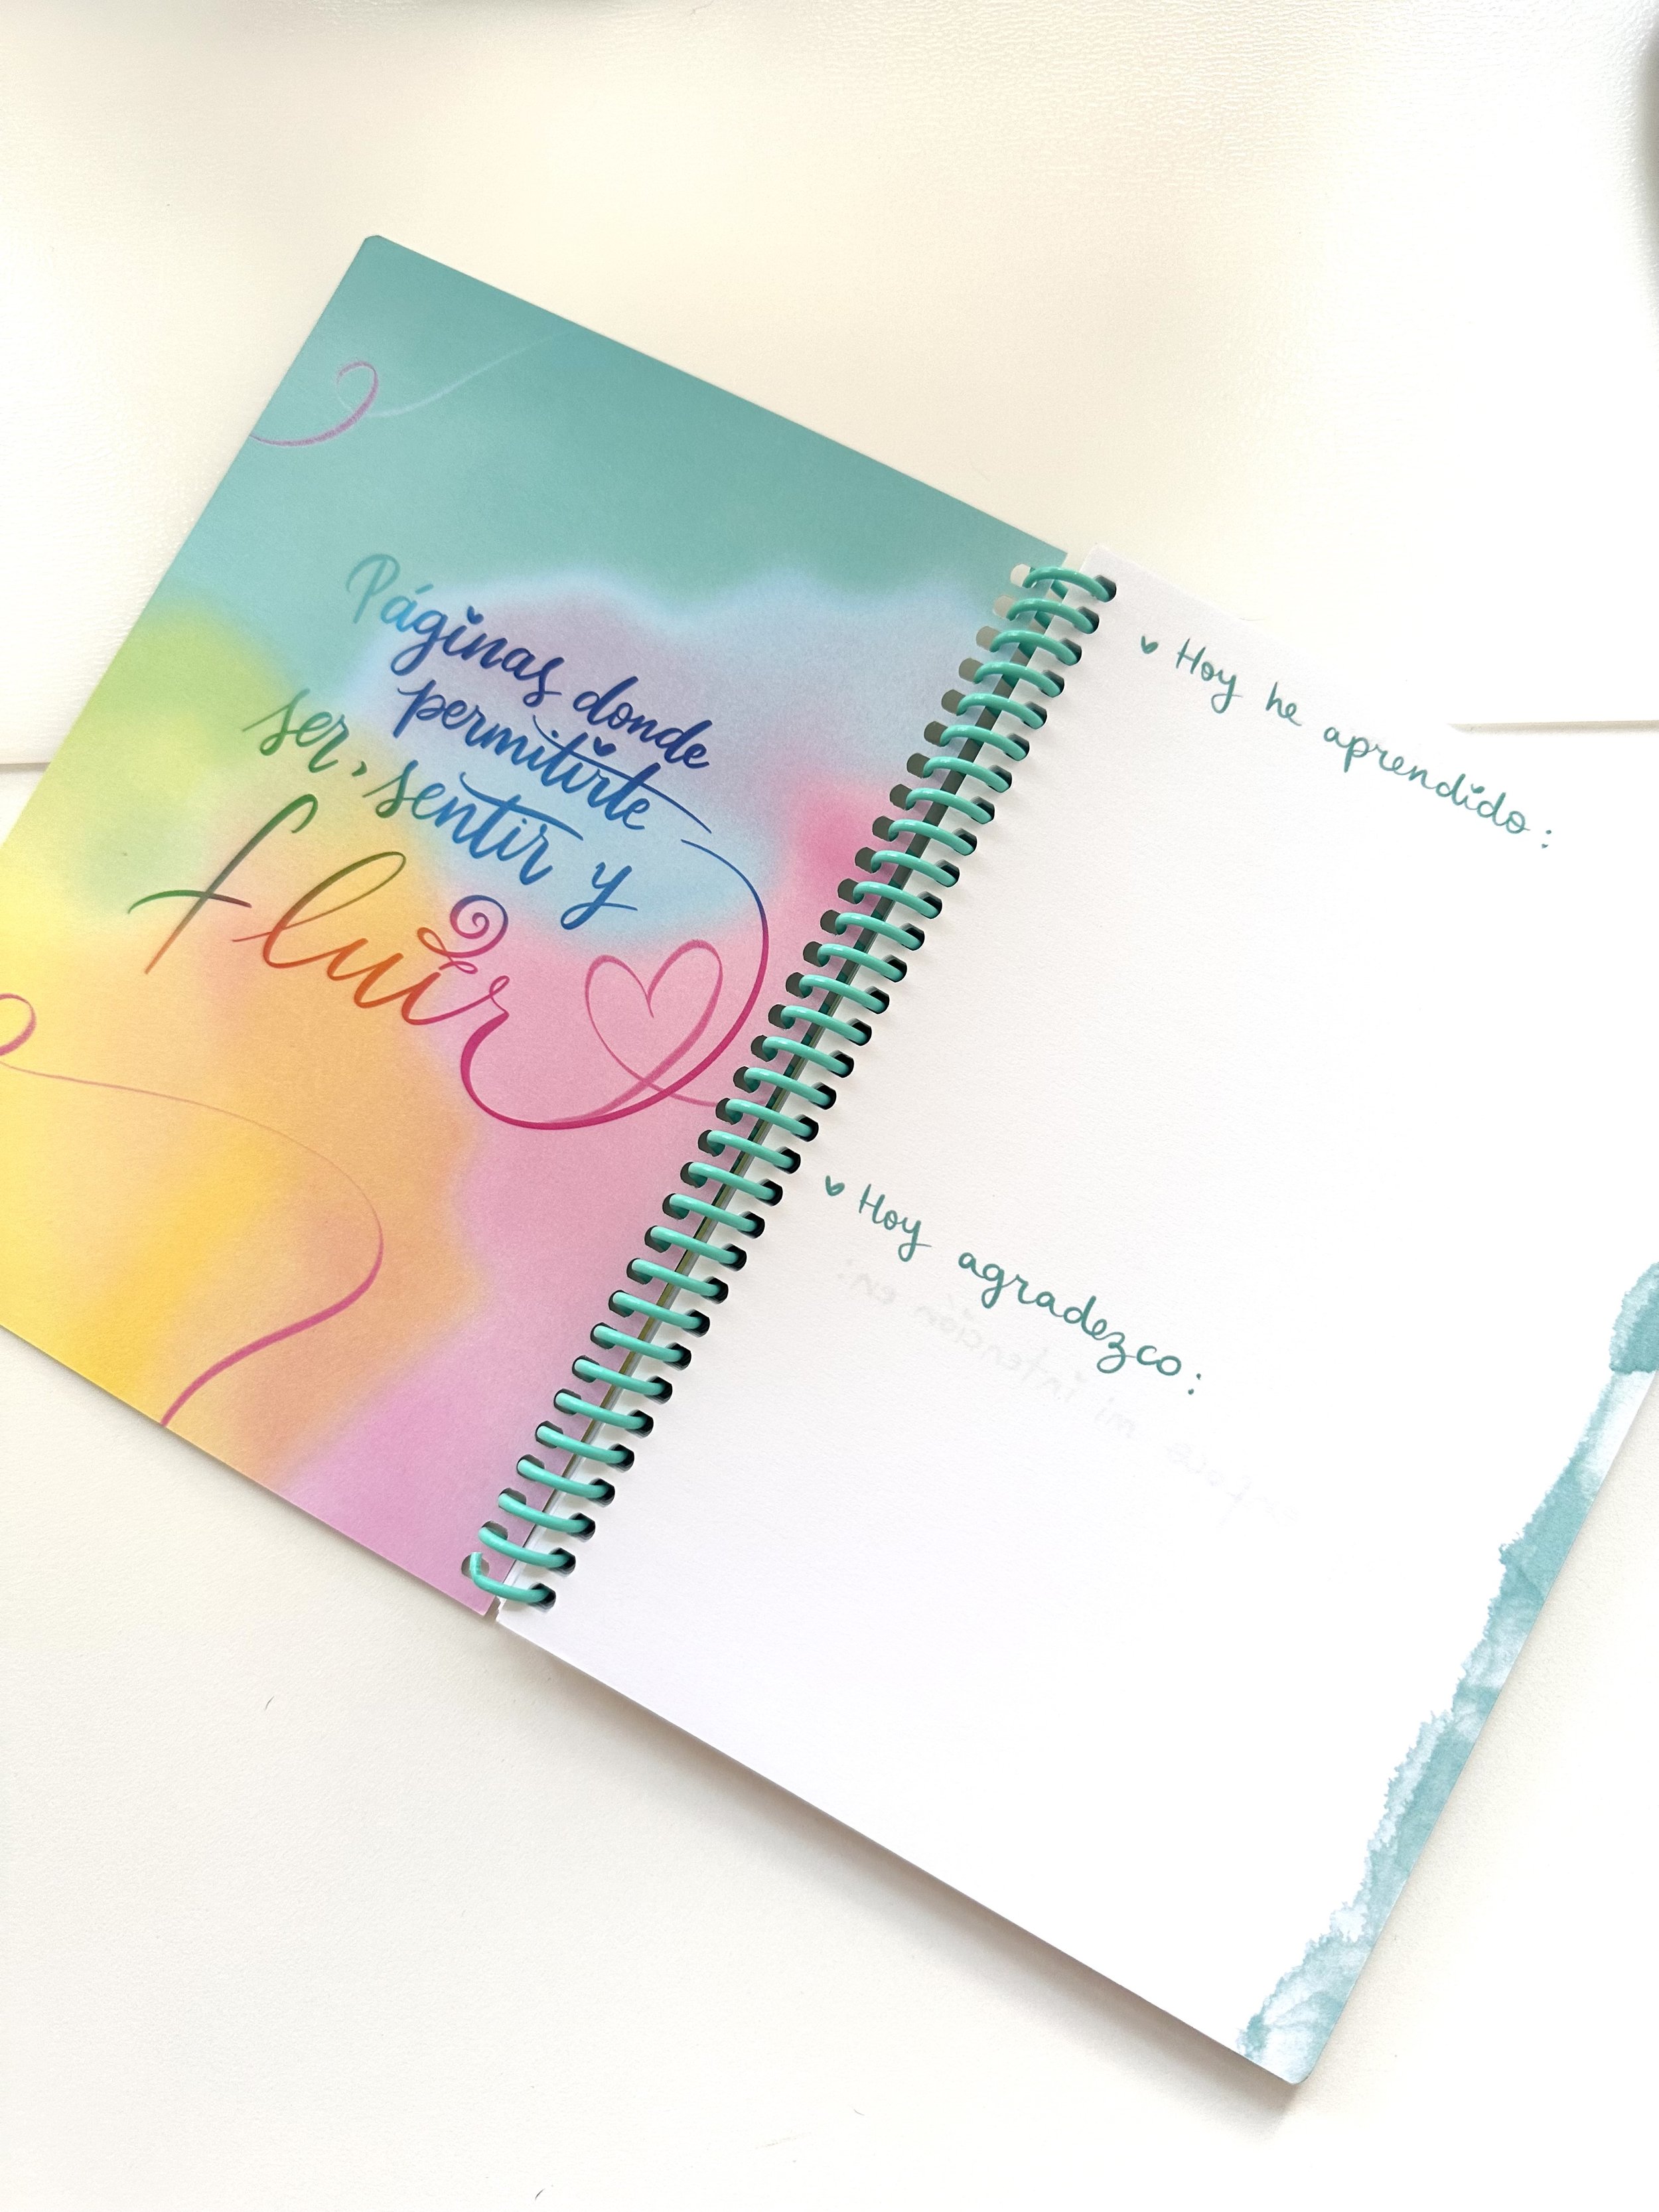 Páginas donde
permitirte
ser, sentir y
fluir
Hoy he aprendido:
Hoy agradezco:
mi intención en: